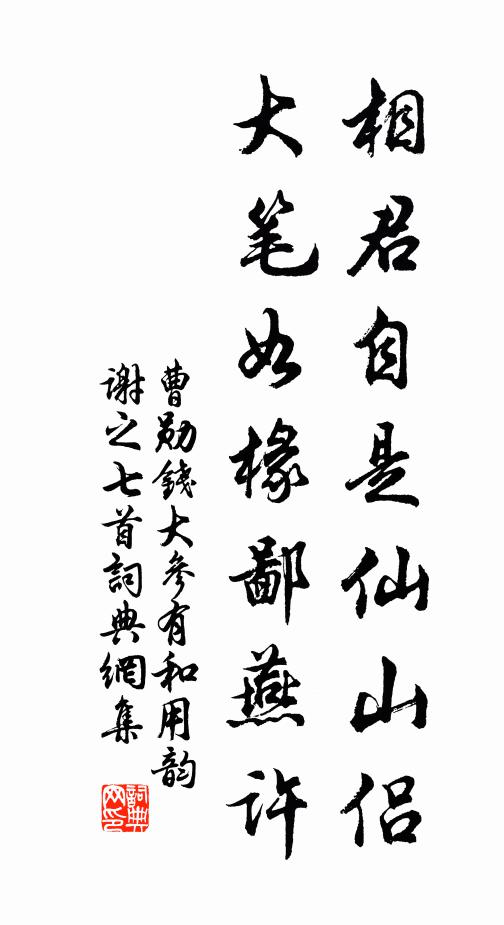 相君自是仙山侣
大笔如椽鄙燕许
曹勋錢大參有和用韵
谢之七首詞典網集
詞典网印